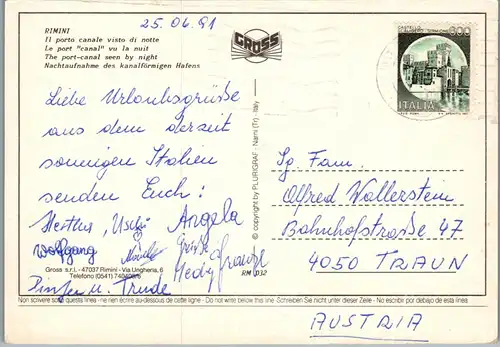 25.06.91
RIMINI
Il porto canale visto di notte
Le port "canal" vu la nuit
The port-canal seen by night
Nachtaufnahme des kanalförmigen Hafens
GROSS
CASTELLO
600
ITALIA
Liebe Urlaubsgrüße
aus dem derzeit
sonnigen Italien
senden Euch:
Hertha, Uschi Angela
Wolfgang
Gross s.r.l. - 47037 Rimini - Via Ungheria, 6
Telefono (0541)
u. Trude
© copyright by PLURIGRAF - Narni (Tr) - Italy
RM
Sg. Fam.
Alfred Wallerstein
Bahnhofstraße 47
4050 TRAUN
Non scrivere sotto questa linea - ne rien écrire au-dessous de cette ligne - Do not write below this line - Schreiben Sie nicht unter dieser Zeile - No escribir por debajo de esta linea
AUSTRIA